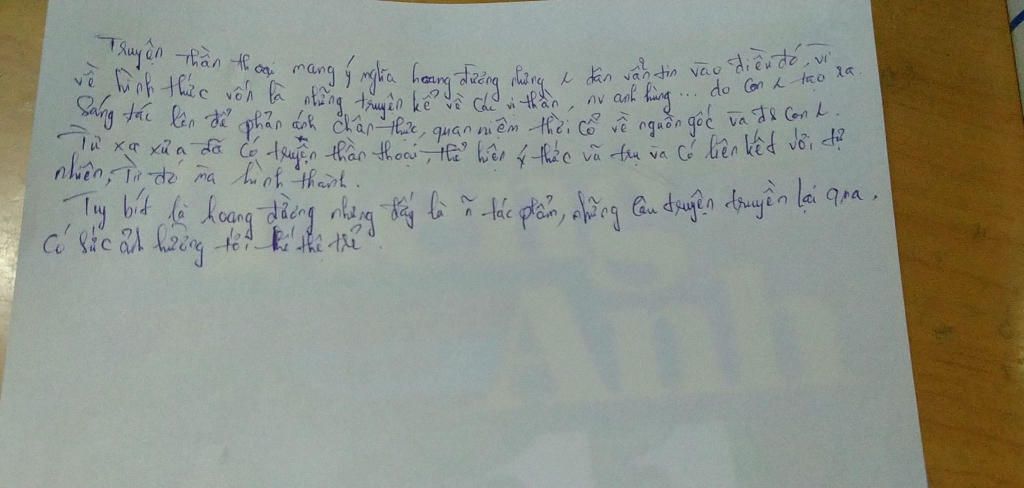 Truyện thần thoại mang ý nghĩa hoang đường nhưng dân vẫn tin vào điều đó, vì
về hình thức vốn là những truyện kể về các vị thần, nv anh hùng... do con tạo ra.
Sáng tác lên để phản ánh chân thực, quan niệm thời cổ về nguồn gốc và đs con
Từ xa xưa đã có truyện thần thoại, thể hiện ý thức vũ trụ và có liên kết với tự
nhiên, Từ đó mà hình thành.
Tuy biết là hoang đường nhưng đấy là tác phẩm, những câu truyện truyền lại qua,
Có sức ảnh hưởng tới thế trẻ.